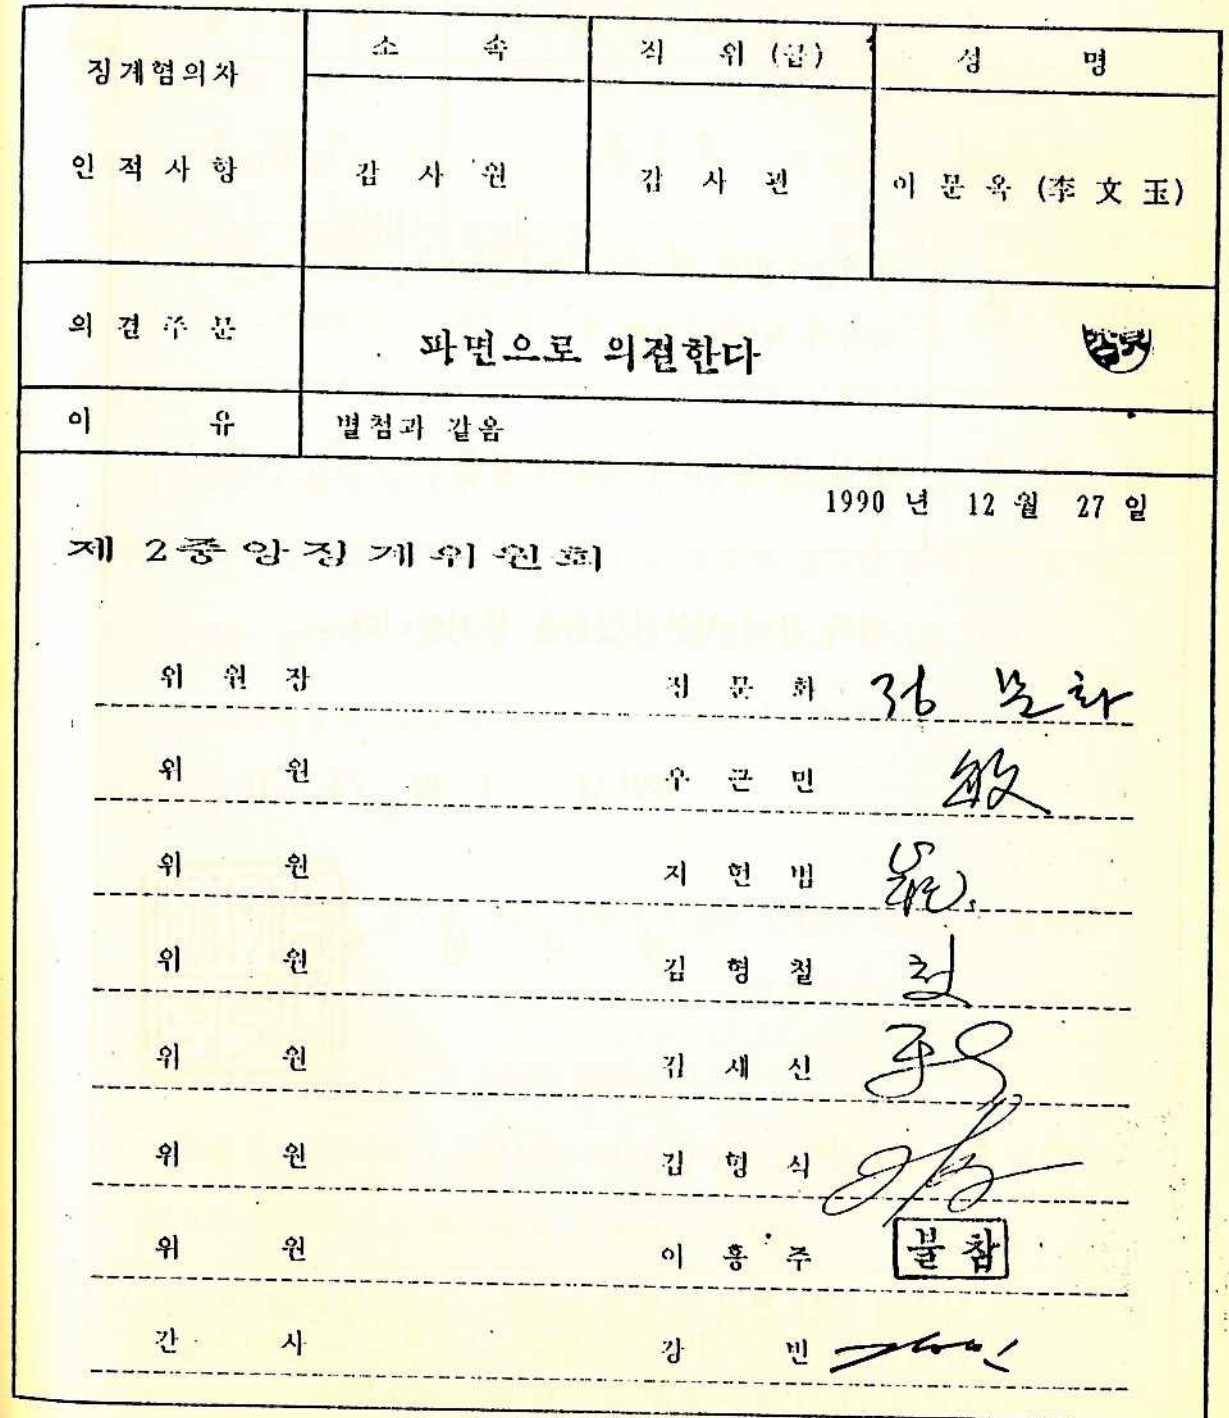 소 속 직 위 (급) 성 명
징계혐의자
인 적 사 항 감 사 원 감 사 관 이 문 옥 (李 文 玉)
의 결 주 문 파면으로 의결한다
이 유 별첨과 같음
1990 년 12 월 27 일
제 2중앙징계위원회
위 원 장 정 문 화 정 문화
위 원 우 근 민 敏
위 원 지 헌 범
위 원 김 형 철
위 원 김 세 신
위 원 김 형 식
위 원 이 흥 주 불참
간 사 강 빈